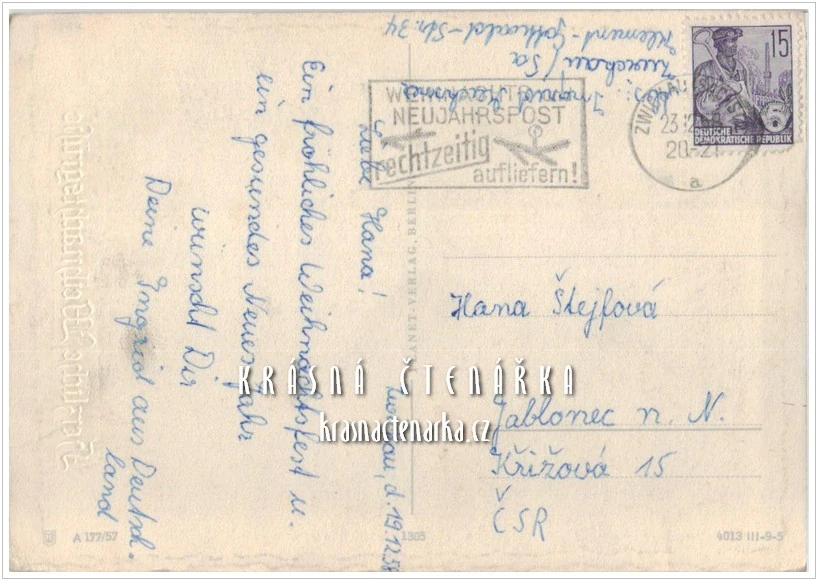 Liebe Hana!
Ein fröhliches Weihnachtsfest u.
ein gesundes Neues Jahr
wünscht Dir
Deine Ingrid aus Deutsch-
land
d. 19.12.58
Zwickau/Sa
Klement-Gottwald-Str. 34
WEIHNACHTS
NEUJAHRSPOST
rechtzeitig
aufliefern!
15
5
DEUTSCHE
DEMOKRATISCHE REPUBLIK
20-21
a
Hana Štejfová
Jablonec n. N.
Křížová 15
ČSR
KRÁSNÁ ČTENÁŘKA
krasnactenarka.cz
PLANET-VERLAG, BERLIN
Fröhliche Weihnachten
A 177/57
1305
4013 III-9-5